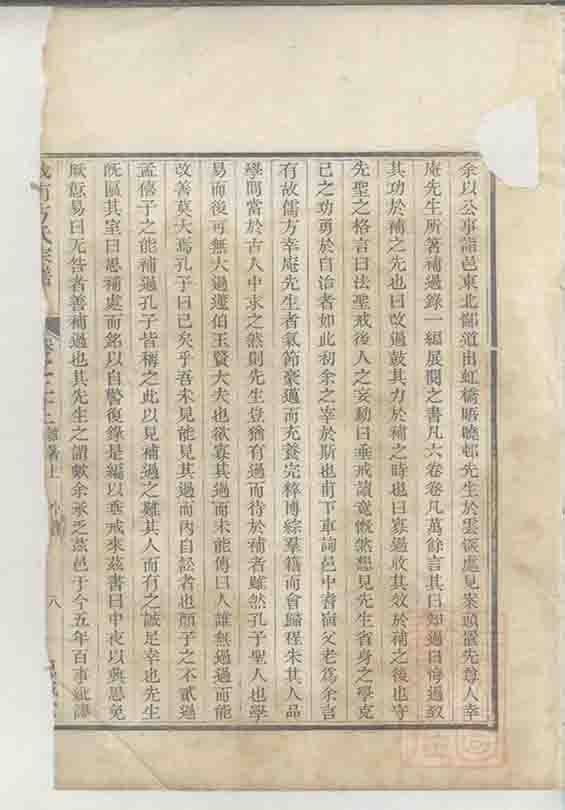 余以公事詣邑東北鄙道出虹橋晤曉邨先生於雲谿處見案頭置先尊人幸
庵先生所著補過錄一編展閱之書凡六卷卷凡萬餘言其曰知過曰悔過致
其功於補之先也曰改過鼓其力於補之時也曰寡過收其效於補之後也守
先聖之格言曰法聖戒後人之妄動曰垂戒讀竟慨然想見先生省身之學克
己之功勇於自治者如此初余之宰於斯也甫下車詢邑中耆宿父老為余言
有故儒方幸庵先生者氣節豪邁而充養完粹博綜羣籍而會歸程朱其人品
學問當於古人中求之然則先生豈猶有過而待於補者雖然孔子聖人也學
易而後可無大過蘧伯玉賢大夫也欲寡其過而未能傳曰人誰無過過而能
改善莫大焉孔子曰已矣乎吾未見能見其過而內自訟者也顏子之不貳過
孟僖子之能補過孔子皆稱之此以見補過之難其人而有之誠足幸也先生
既區其室曰思補處而銘以自警復錄是編以垂戒來茲書曰中夜以興思免
厥愆易曰无咎者善補過也其先生之謂歟余承乏茲邑于今五年百事紕謬
方氏宗譜
卷之
雜著上
八